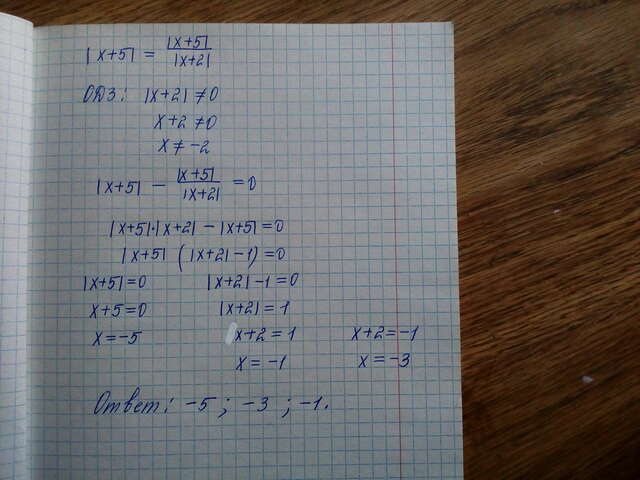 |x+5| = |x+5|/|x+2|
ОДЗ: |x+2| ≠ 0
x+2 ≠ 0
x ≠ -2
|x+5| - |x+5|/|x+2| = 0
|x+5|·|x+2| - |x+5| = 0
|x+5| (|x+2| - 1) = 0
|x+5| = 0 |x+2| - 1 = 0
x+5 = 0 |x+2| = 1
x = -5 x+2 = 1 x+2 = -1
x = -1 x = -3
Ответ: -5; -3; -1.